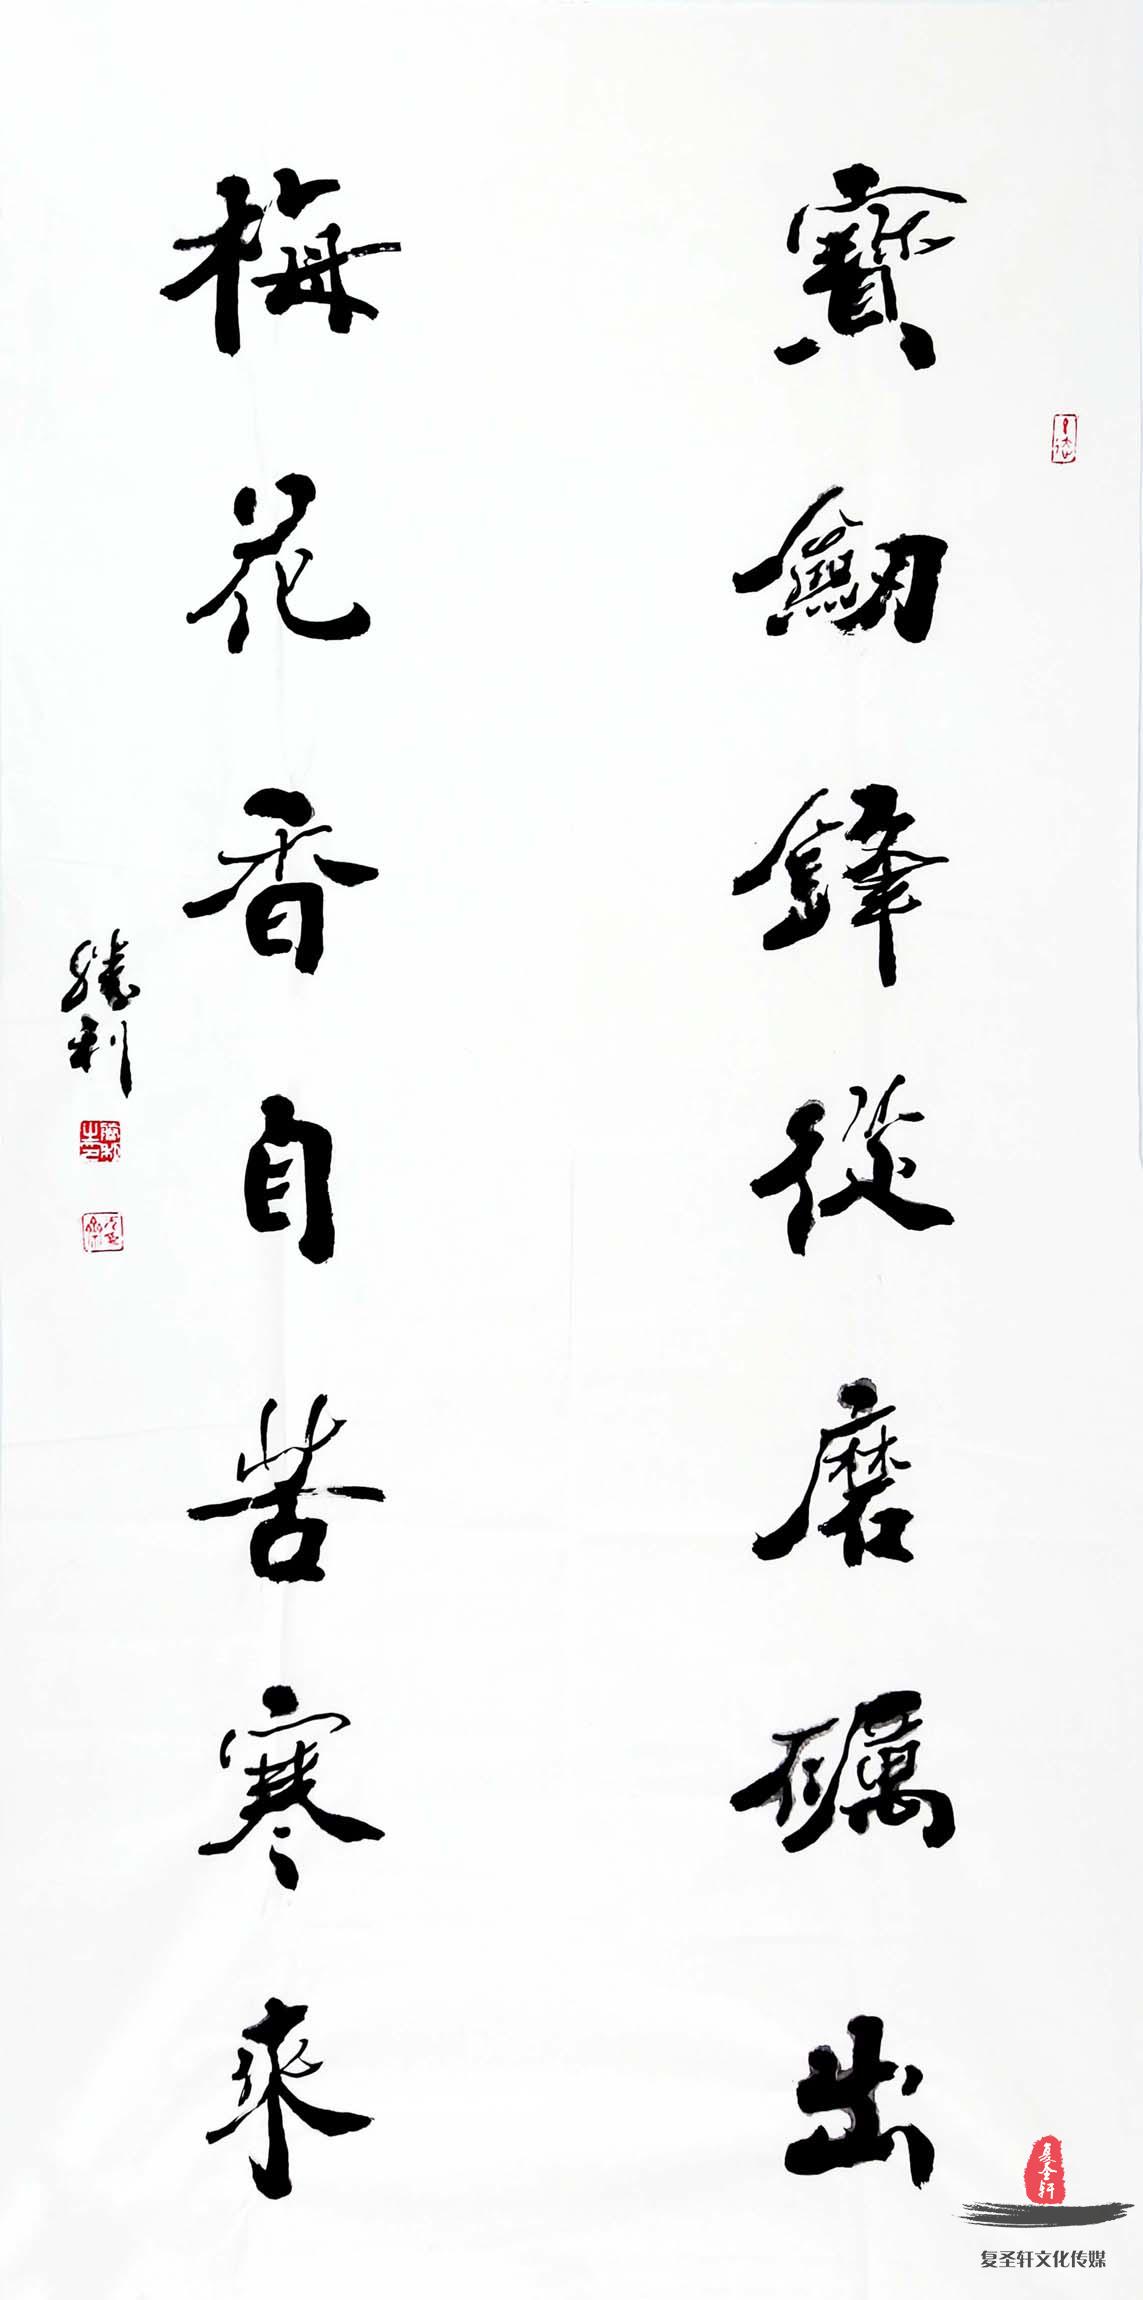 寶劒鋒從磨礪出
梅花香自苦寒來
勝利
复圣轩
复圣轩文化传媒